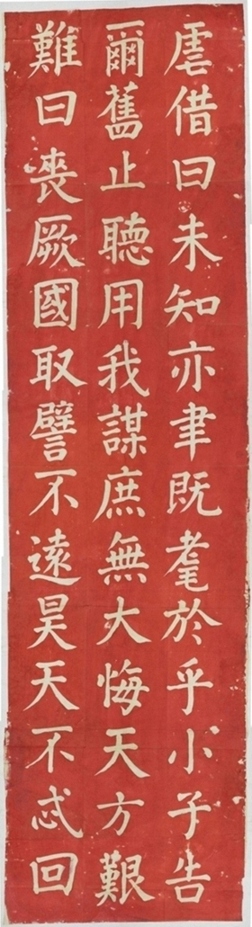 虐借曰未知亦聿既耄於乎小子告
爾舊止聽用我謀庶無大悔天方艱
難曰喪厥國取譬不遠昊天不忒回